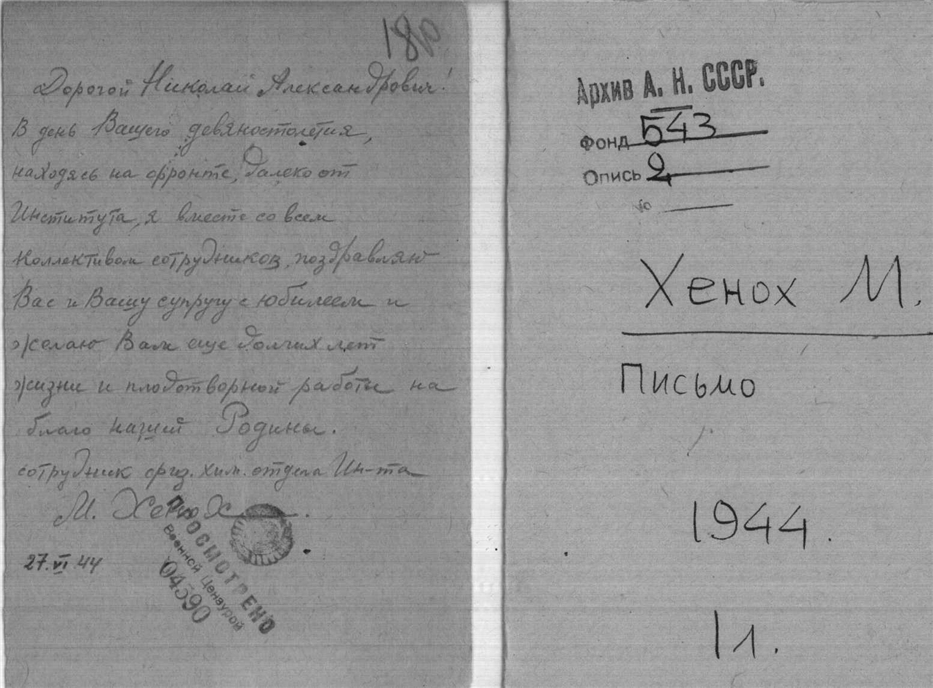 18
Дорогой Николай Александрович!
В день Вашего девяностолетия,
находясь на фронте, далеко от
Института, я вместе со всем
коллективом сотрудников, поздравляю
Вас и Вашу супругу с юбилеем и
желаю Вам еще долгих лет
жизни и плодотворной работы на
благо нашей Родины.
сотрудник физ. хим. отдела Ин-та
М. Хенох.
27.VI 44
ПРОСМОТРЕНО
Военной Цензурой
04390
Архив А. Н. СССР.
Фонд 543
Опись 2
№
Хенох М.
Письмо
1944.
1 л.